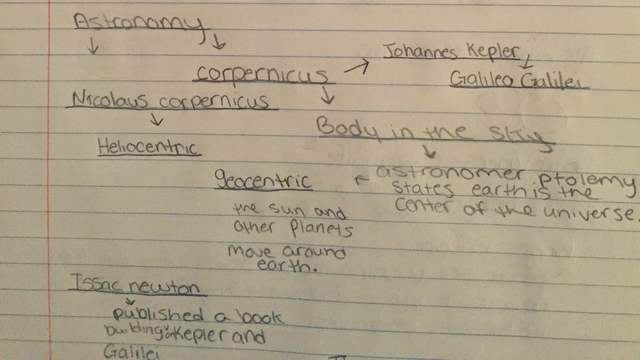 Astronomy
Johannes Kepler
corpernicus
Galileo Galilei
Nicolaus corpernicus
Body in the sky
Heliocentric
astronomer ptolemy
geocentric
states earth is the
center of the universe.
the sun and
other planets
move around
earth.
Issac newton
published a book
building Kepler and
Galilei